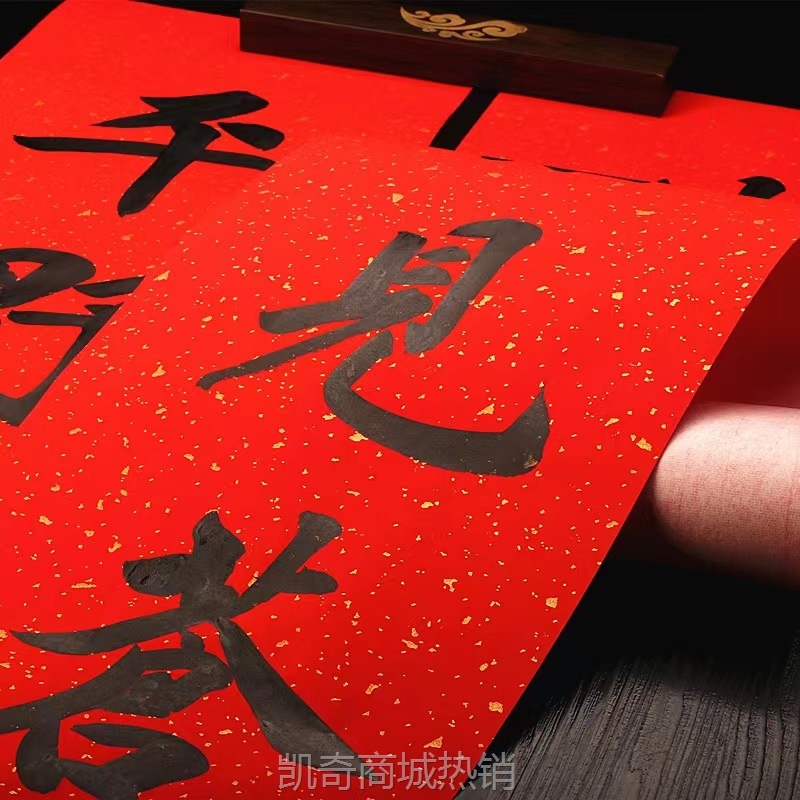 平
見
春
凯奇商城热销